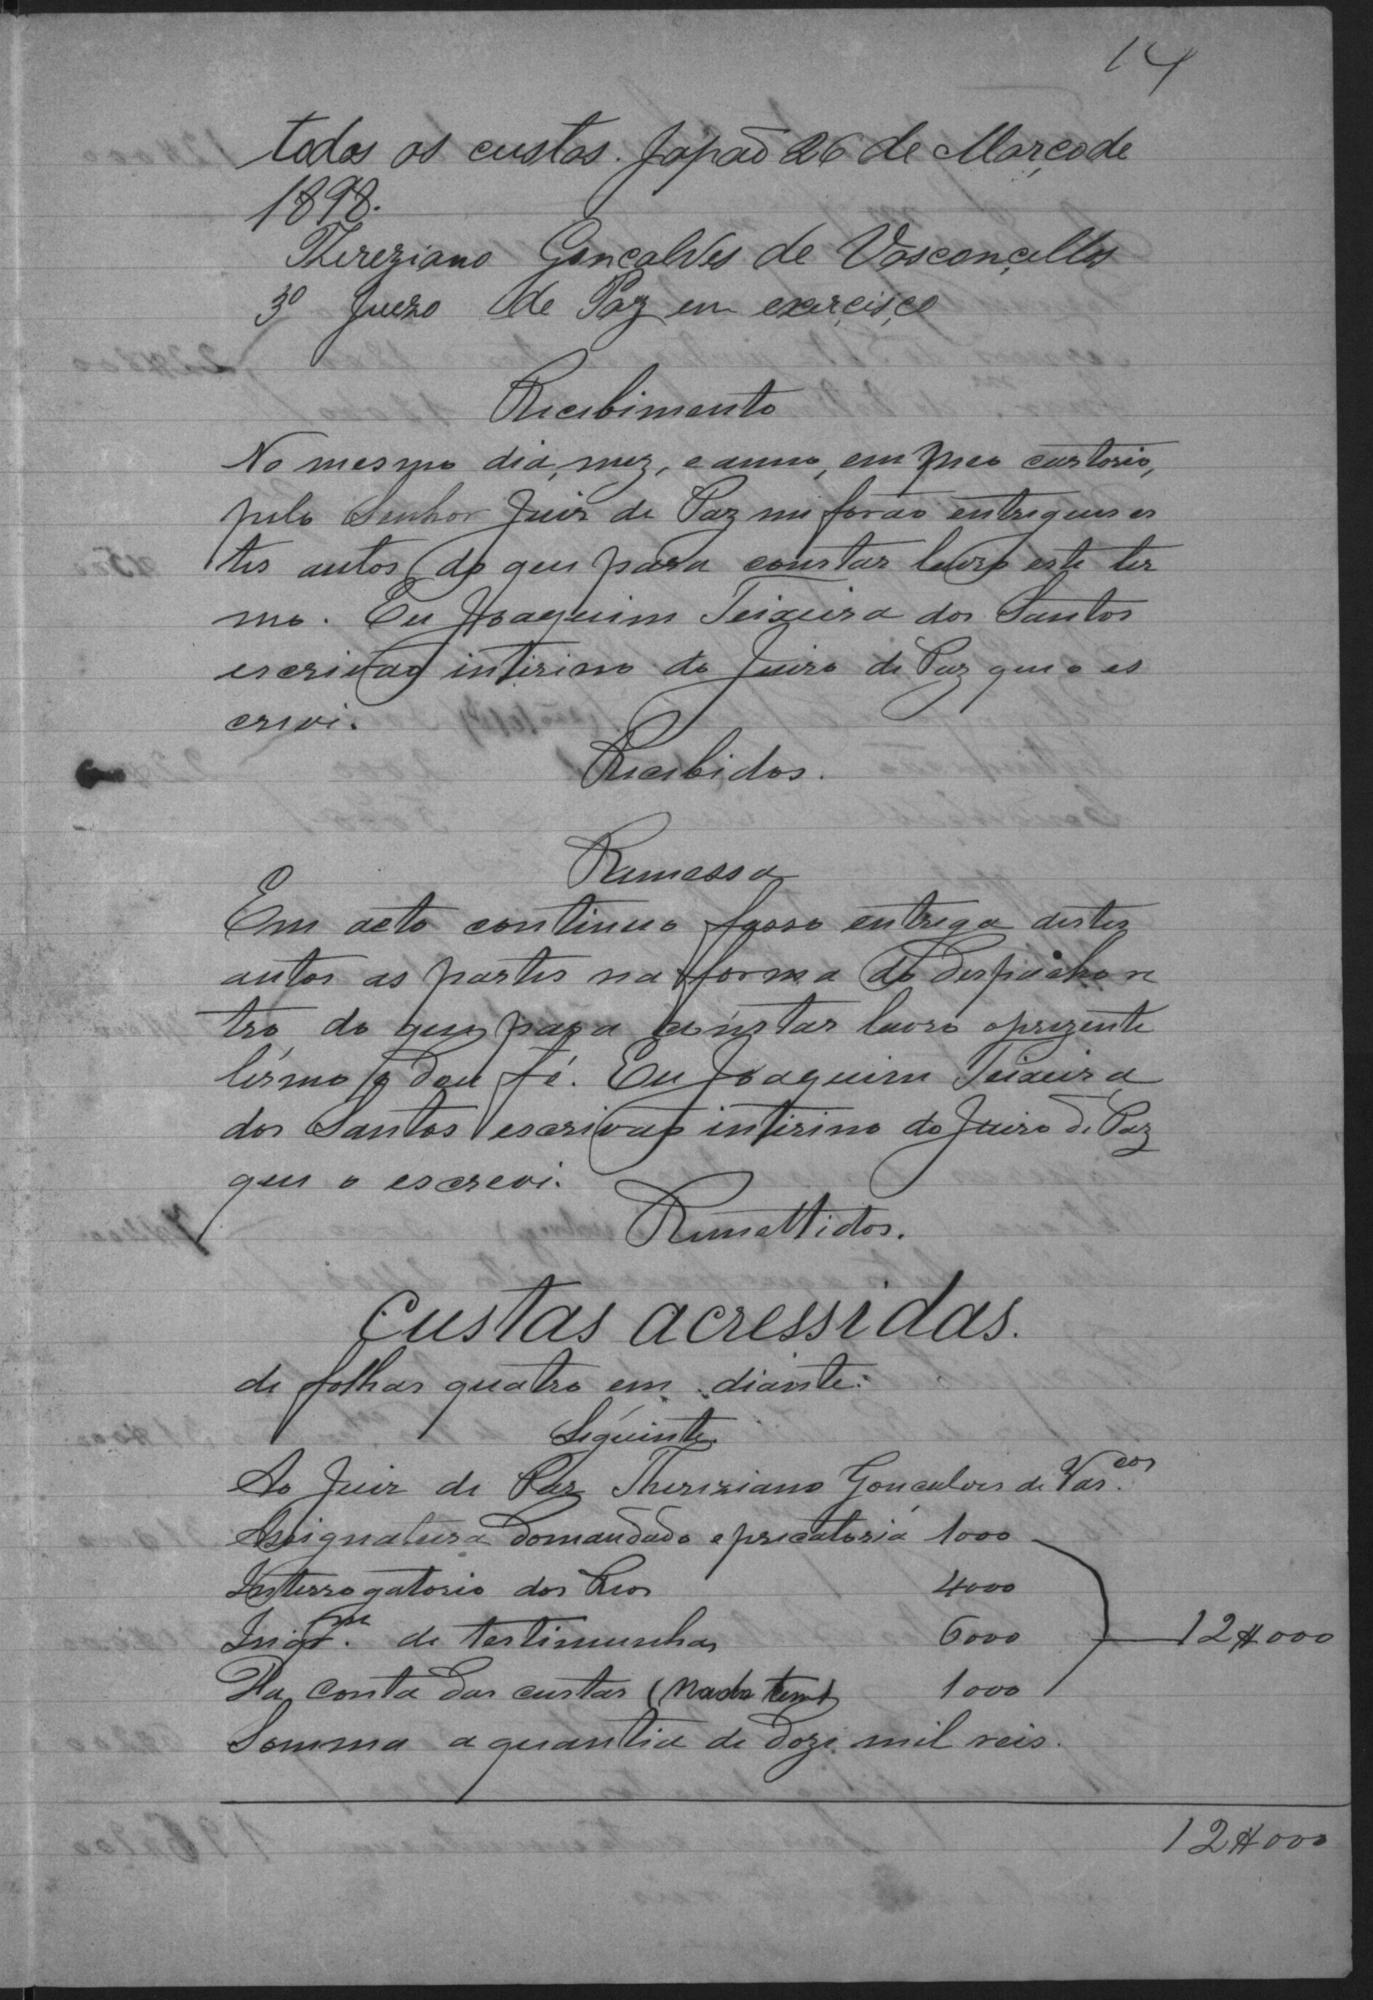 14
todas as custas. Japão 26 de Março de
1898.
Thereziano Gonçalves de Vasconçellos
3º Juezo de Paz em exercisço
Recebimento
No mesmo dia, mez, e anno, em meo cartorio,
pelo Senhor Juiz de Paz me forão entregues es
tes autos do que para constar lavro este ter
mo. Eu Joaquim Teixeira dos Santos
escrivão interino do Juizo de Paz que o es
crevi.
Recebidos.
Remessa
Em acto continuo fasso entrega destes
autos as partes na forma do despacho re
tro, do que para constar lavro o prezente
termo e dou fé. Eu Joaquim Teixeira
dos Santos escrivão interino do Juizo de Paz
que o escrevi.
Remettidos.
Custas acressidas.
de folhas quatro em diante.
Seguinte
Ao Juiz de Paz Thereziano Gonçalves de Vas.cos
Assignatura do mandado e precatoria 1000
Interrogatorio dos Reos 4000
Inqr.m de testimunhas 6000 12$000
Da conta das custas (Nada tem) 1000
Somma a quantia de doze mil reis.
12$000